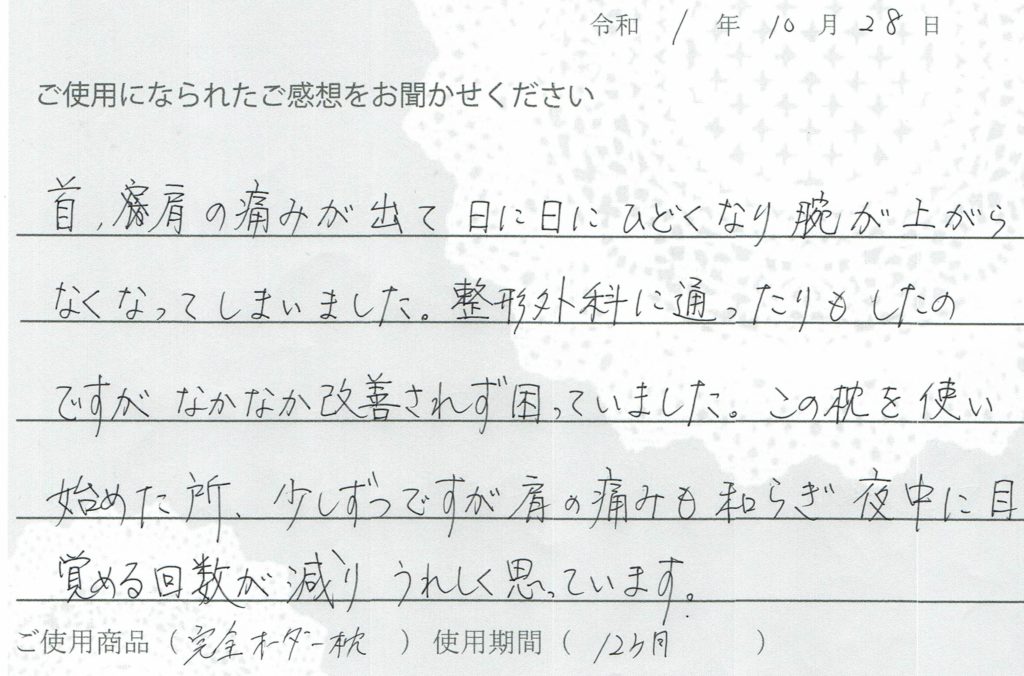 令和 1 年 10 月 28 日
ご使用になられたご感想をお聞かせください
首、肩の痛みが出て日に日にひどくなり腕が上がら
なくなってしまいました。整形外科に通ったりもしたの
ですがなかなか改善されず困っていました。この枕を使い
始めた所、少しずつですが肩の痛みも和らぎ夜中に目
覚める回数が減りうれしく思っています。
ご使用商品（完全オーダー枕）使用期間（12ヶ月）